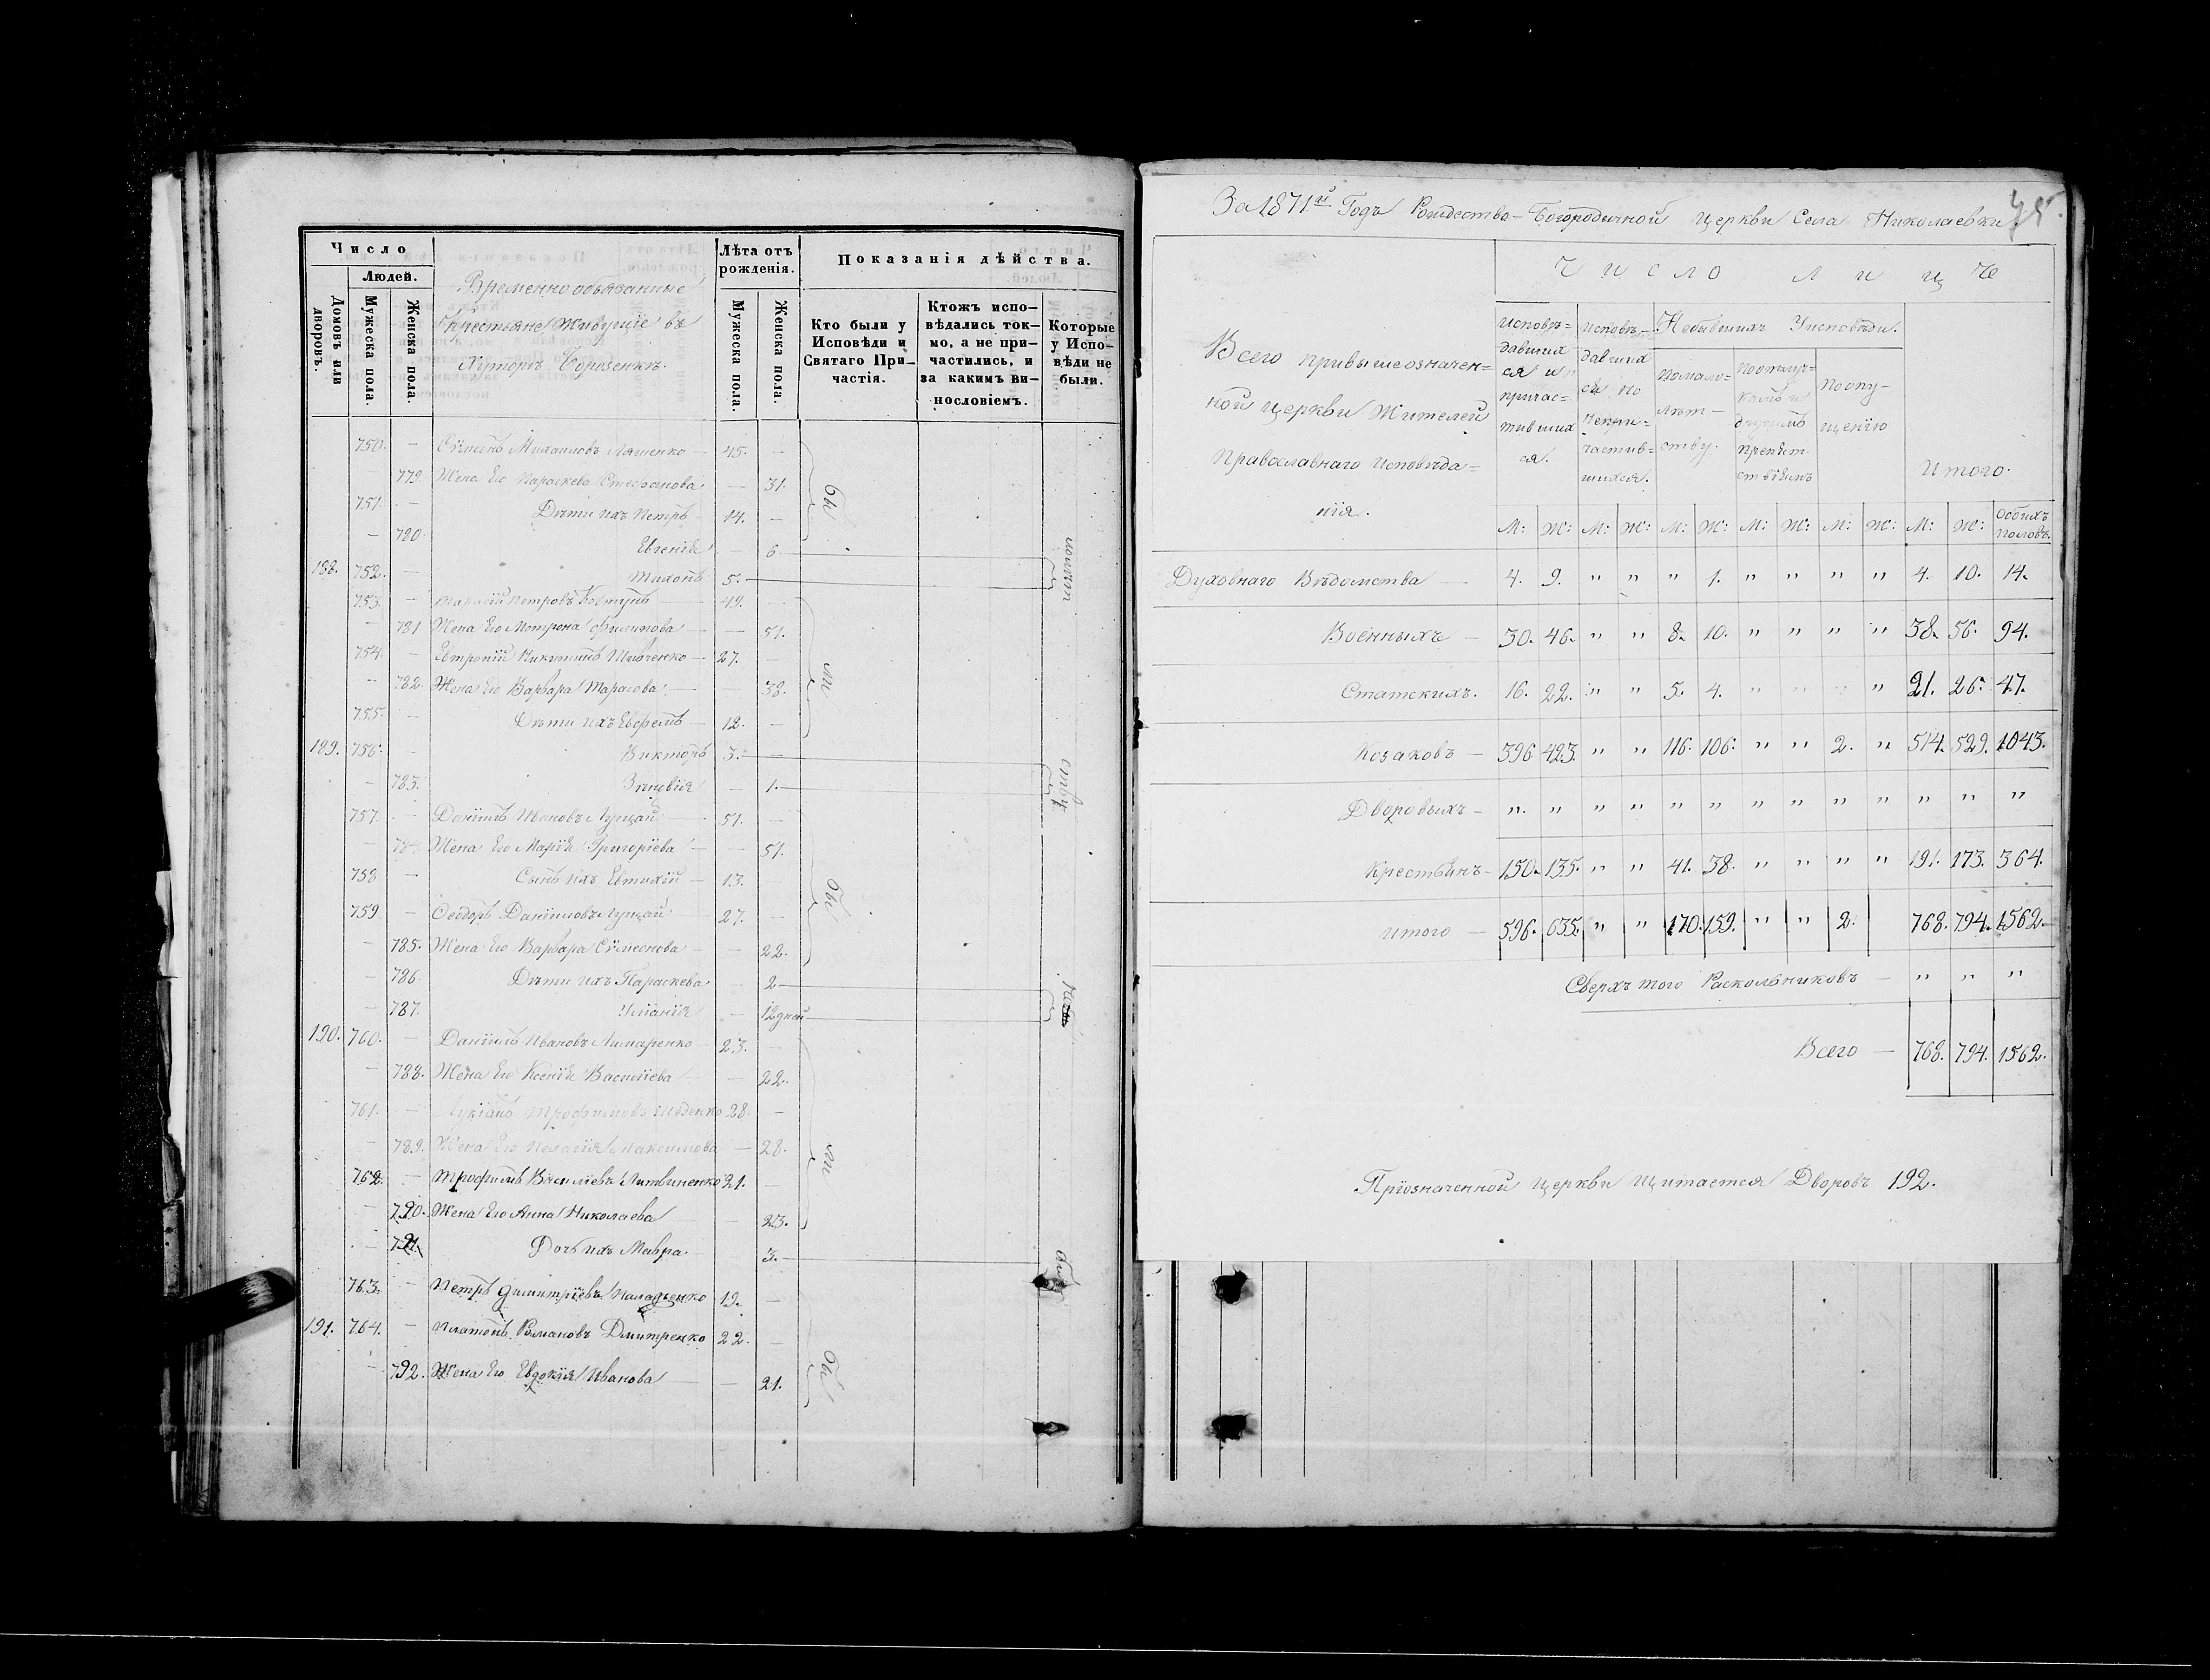 Число
Людей.
Домовъ или дворовъ.
Мужеска пола.
Женска пола.
Временно обязанные
Крестьяне Живущіе въ
Хуторѣ
Лѣта отъ рожденія.
Мужеска пола.
Женска пола.
Показанія дѣйства.
Кто были у Исповѣди и Святаго При-частія.
Ктожъ испо-вѣдались ток-мо, а не при-частились, и за какимъ ви-нословіемъ.
Которые у Испо-вѣди не были.
750. — Сѵмеонъ Михаиловъ Ляшенко — 45. —
— 779. Жена Его Параскева Стефанова — 31.
751. — Дѣти ихъ Петръ 14. —
— 780. Евгенія — 6
188. 752. — Тихонъ 5.
753. — Тарасій Петровъ Ковтунъ 49. —
— 781 Жена Его Мотрона Филипова — 51.
754. — Евтропій Никитинъ Шевченко 27. —
— 782. Жена Его Варвара Тарасова — 38.
755. — Дѣти ихъ Евфремъ 12. —
189. 756. — Викторъ 3. —
— 783. Зиновія — 1.
757. — Даніилъ Ивановъ Лущай 51. —
— 784. Жена Его Марія Григоріева — 51.
758 — Сынъ ихъ Евтихій 13.
759. — Ѳеодоръ Даніиловъ Лущай 27. —
— 785. Жена Его Варвара Сѵмеонова — 22.
— 786. Дѣти ихъ Параскева — 2
— 787. Уліанія — 12 дней
190. 760. — Даніилъ Ивановъ Лимаренко 23. —
— 788. Жена Его Ксенія Василіева — 22.
761. — Лукіанъ Трофимовъ 28. —
— 789. Жена Его Пелагія Максимова — 28.
762. — Трофимъ Василіевъ Литвиненко 21. —
— 790. Жена Его Анна Николаева — 23.
— 791. Дочь ихъ Мавра — 3.
763. — Петръ Димитріевъ 19. —
191. 764. — Платонъ Романовъ Дмитренко 22. —
— 792. Жена Его Евдокія Иванова — 21.
бы
ли
бы
ли
бы
помало
ству
За 1871й Годъ Рождество-Богородичной церкви Села Николаевки
Число лицъ
Всего привышеозначен=
ной церкви Жителей
Православнаго Исповѣда=
нія.
Исповѣ=давшихся и причас=тившихся.
Исповѣ=давшихся но непри=частив=шихся.
Небывшихъ Уисповѣди.
помало=лѣт-ству.
Поопу-щенію
Итого.
М: Ж: М: Ж: М: Ж: М: Ж: М: Ж: М: Ж: Обоихъ половъ.
Духовнаго Вѣдомства — 4. 9. " " " 1. " " " " 4. 10. 14.
Военныхъ — 30. 46. " " 8. 10. " " " " 38. 56. 94.
Статскихъ. 16. 22. " " 5. 4. " " " " 21. 26. 47.
Козаковъ — 396. 423. " " 116. 106. " " 2. " 514. 529. 1043.
Дворовыхъ — " " " " " " " " " " " " "
Крестьянъ — 150. 135. " " 41. 38. " " " " 191. 173. 364.
Итого — 596. 635. " " 170. 159. " " 2. 768. 794. 1562.
Сверхъ того Раскольниковъ — " " "
Всего — 768. 794. 1562.
Приозначенной церкви щитается Дворовъ 192.